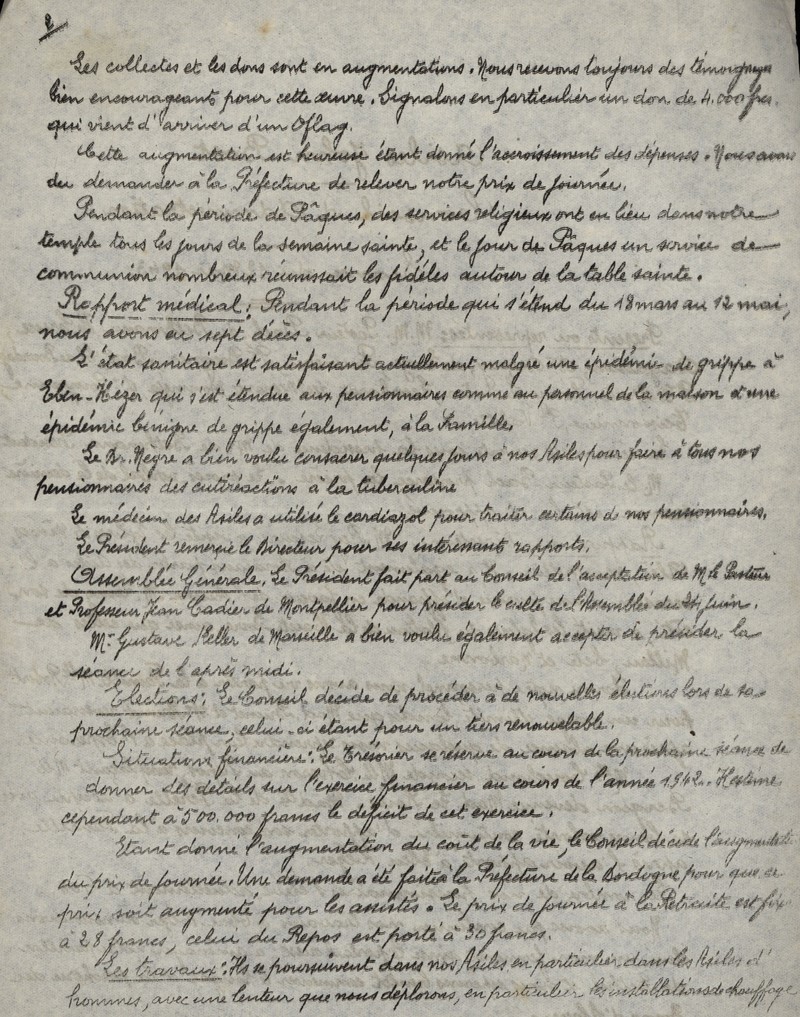 2
Les collectes et les dons sont en augmentations. Nous recevons toujours des témoignages
bien encourageant pour cette œuvre. Signalons en particulier un don de 4.000 frcs.
qui vient d'arriver d'un Oflag.
Cette augmentation est heureuse étant donné l'accroissement des dépenses. Nous avons
du demander à la Préfecture de relever notre prix de journée.
Pendant la période de Pâques, des services religieux ont eu lieu dans notre
temple tous les jours de la semaine sainte, et le jour de Pâques un service de
communion nombreux réunissait les fidéles autour de la table sainte.
Rapport médical: Pendant la periode qui s'étend du 18 mars au 12 mai,
nous avons eu sept décès.
L'état sanitaire est satisfaisant actuellement malgré une épidémie de grippe à
Eben-Hézer qui s'est étendue aux pensionnaires comme au personnel de la maison et une
épidémie bénigne de grippe également, à la Famille.
Le Dr. Nègre a bien voulu consacrer quelques jours à nos Asiles pour faire à tous nos
pensionnaires des cutiréactions à la tuberculine
Le médecin des Asiles a utilisé le cardiazol pour traiter certains de nos pensionnaires.
Le Président remercie le Directeur pour ses intéressants rapports.
Assemblée Générale. Le Président fait part au Conseil de l'acceptation de M. le Pasteur
et Professeur Jean Cadier de Montpellier pour présider le culte de l'Assemblée du 24 Juin.
Mr. Gustave de Marseille a bien voulu également accepter de présider la
séance de l'après midi.
Elections: Le Conseil décide de procéder à de nouvelles élections lors de sa
prochaine séance, celui-ci étant pour un tiers renouvelable.
Situation financière: Le Trésorier se réserve au cours de la prochaine séance de
donner des détails sur l'exercice financier au cours de l'année 1942. Il estime
cependant à 500.000 francs le déficit de cet exercice.
Etant donné l'augmentation du coût de la vie, le Conseil décide l'augmentation
du prix de Journée. Une demande a été faite à la Préfecture de la Dordogne pour que ce
prix soit augmenté pour les assistés. Le prix de journée à la Retraite est fixé
à 28 francs, celui du Repos est porté à 30 francs.
Les travaux: Ils se poursuivent dans nos Asiles en particulier dans les Asiles d'
hommes, avec une lenteur que nous déplorons, en particulier les installations de chauffage